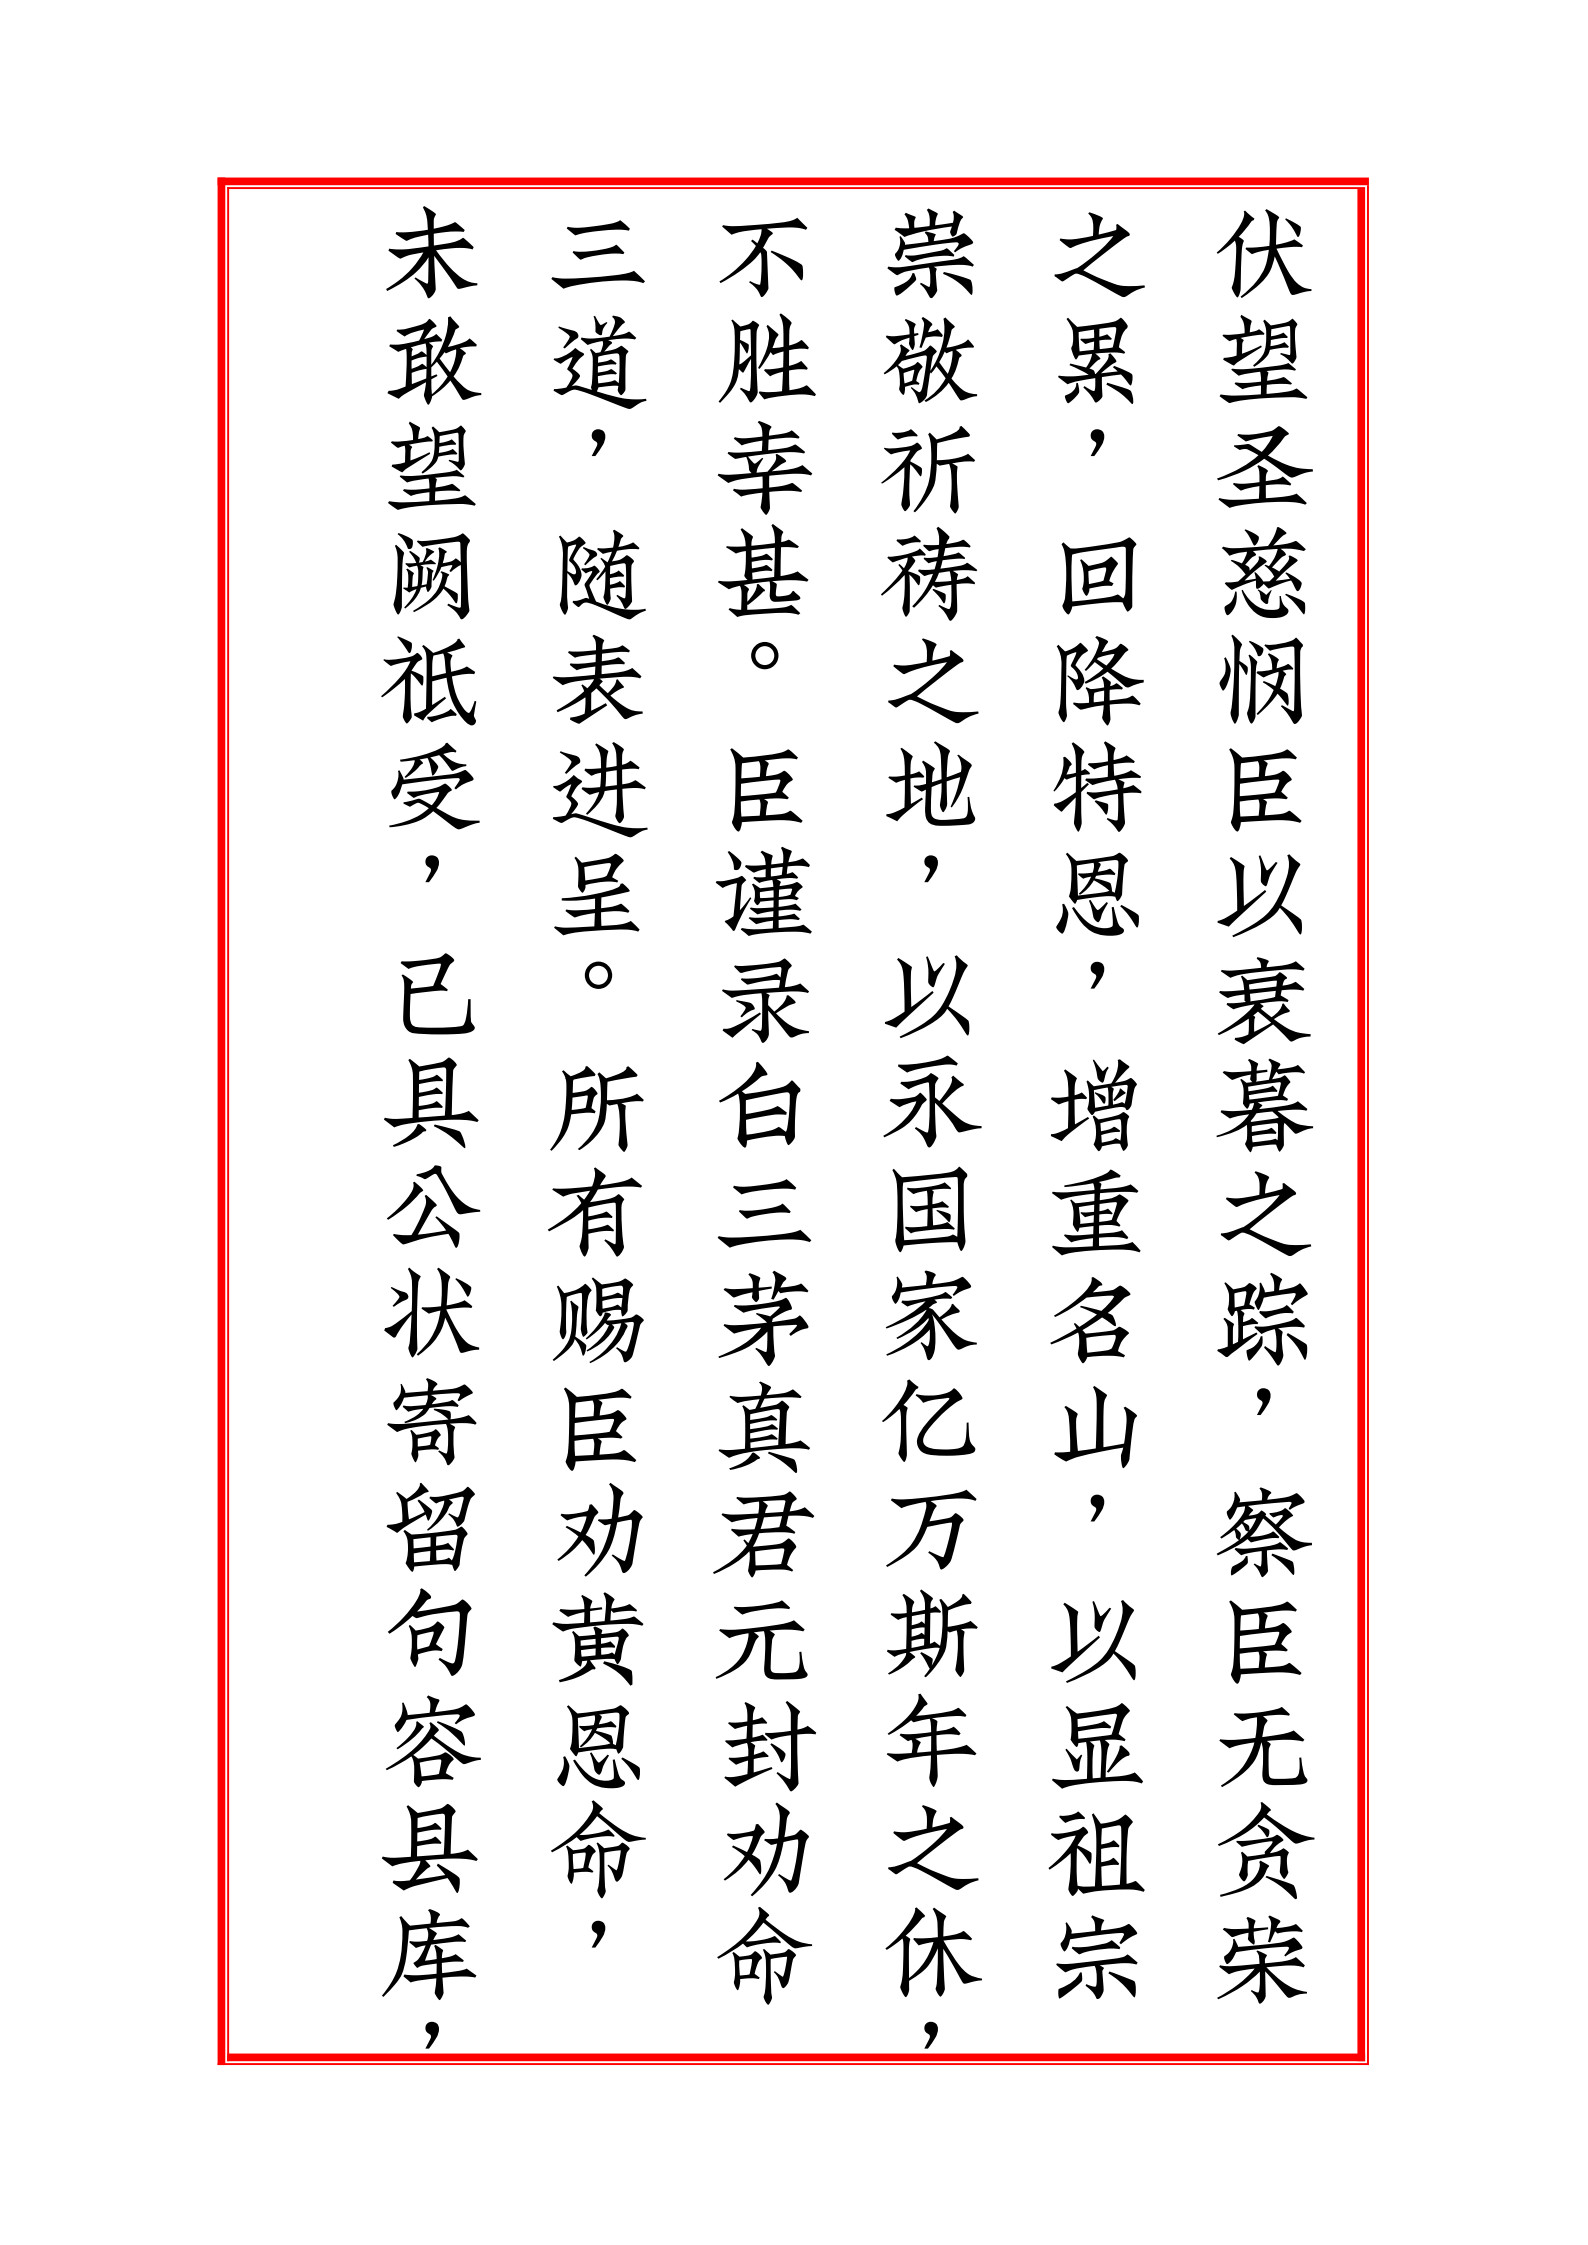 伏望圣慈悯臣以衰暮之踪，察臣无贪荣
之累，回降特恩，增重名山，以显祖宗
崇敬祈祷之地，以永国家亿万斯年之休，
不胜幸甚。臣谨录白三茅真君元封劝命
三道，随表进呈。所有赐臣劝黄恩命，
未敢望阙祗受，已具公状寄留句容县库，